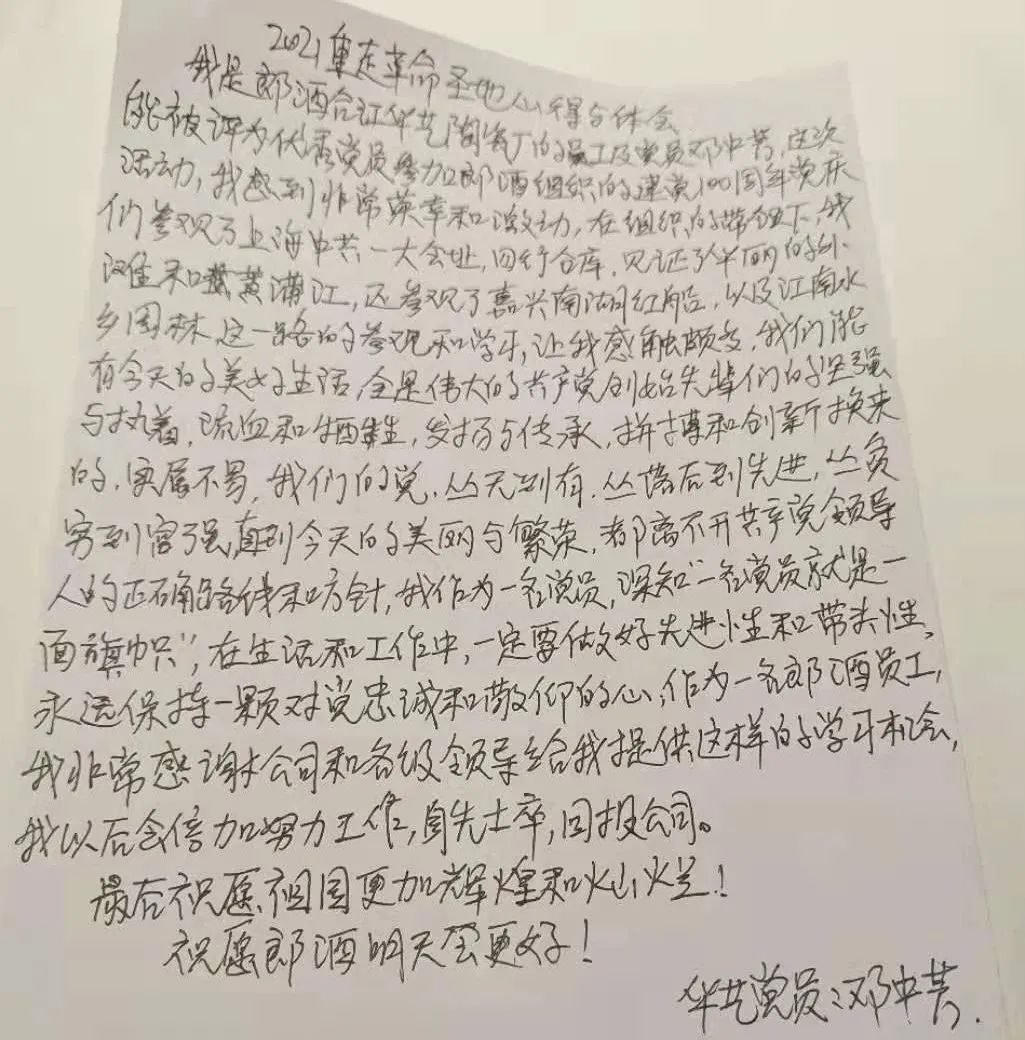 2021重走革命圣地心得与体会
我是郎酒合江华艺陶瓷厂的员工及党员邓中芬,这次
能被评为优秀党员参加郎酒组织的建党100周年党庆
活动,我感到非常荣幸和激动,在组织的带领下,我
们参观了上海中共一大会址,四行仓库,见证了华丽的外
滩和黄浦江,还参观了嘉兴南湖红船,以及江南水
乡园林,这一路的参观和学习,让我感触颇多,我们能
有今天的美好生活,全是伟大的共产党创始先辈们的坚强
与执着,流血和牺牲,发扬与传承,拼搏和创新换来
的,实属不易,我们的党,从无到有,从落后到先进,从贫
穷到富强,直到今天的美丽与繁荣,都离不开共产党领导
人的正确路线和方针,我作为一名党员,深知“一名党员就是一
面旗帜”,在生活和工作中,一定要做好先进性和带头性,
永远保持一颗对党忠诚和敬仰的心,作为一名郎酒员工,
我非常感谢公司和各级领导给我提供这样的学习机会,
我以后会倍加努力工作,身先士卒,回报公司。
最后祝愿祖国更加辉煌和灿烂!
祝愿郎酒明天会更好!
华艺党员:邓中芬.